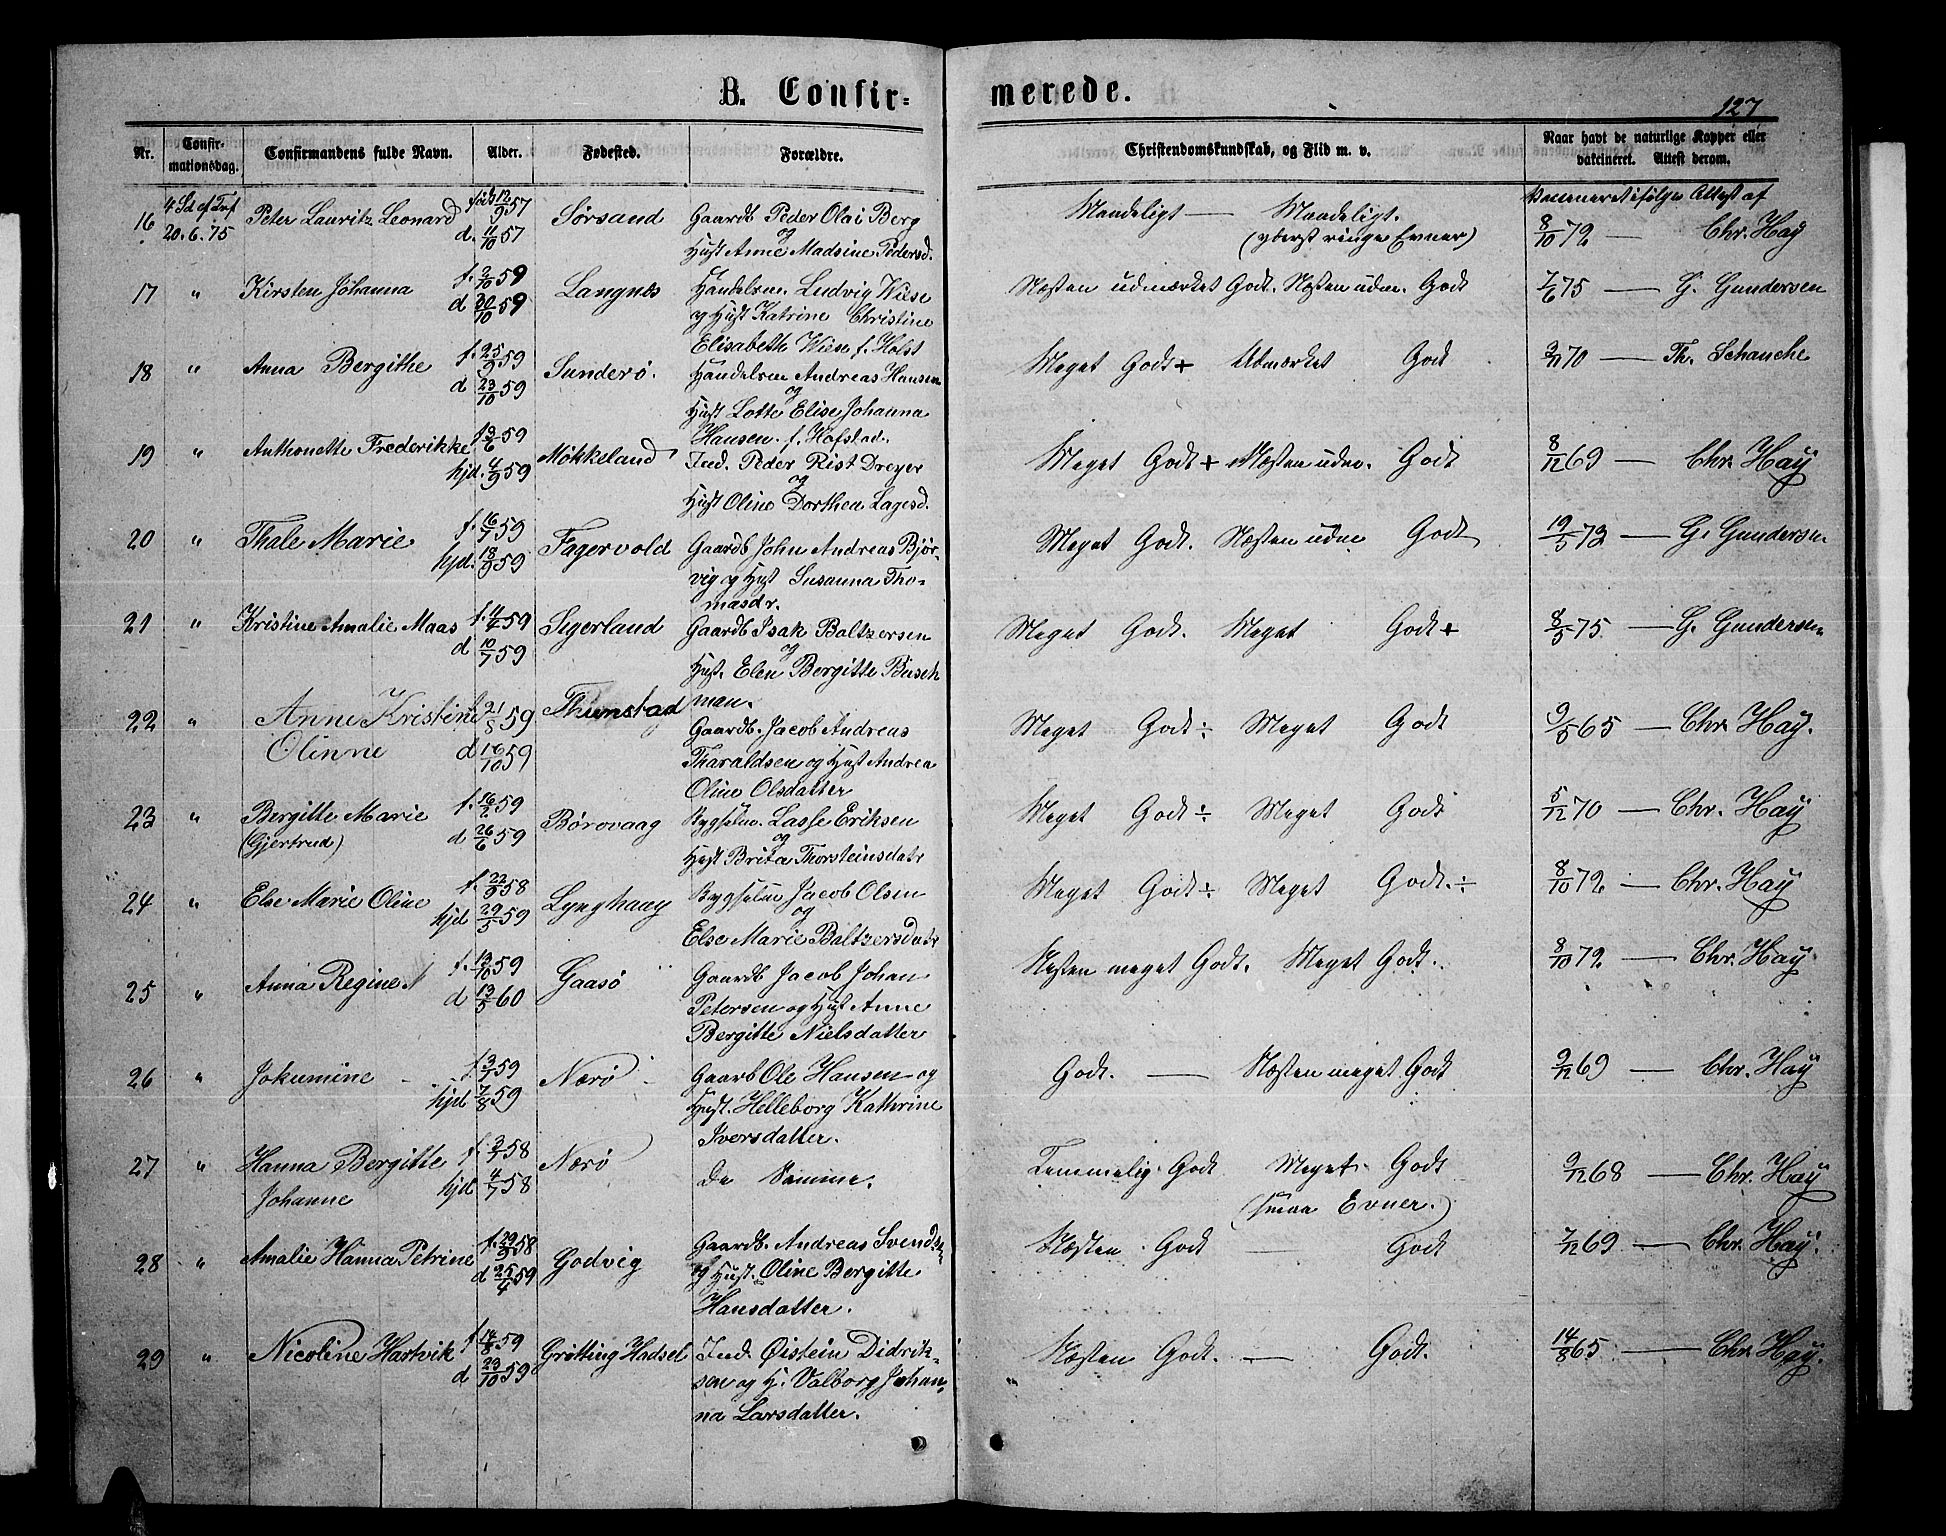 B. Confir=merede.
127
Nr. Confir-mationsdag. Confirmandens fulde Navn. Alder. Fødested. Forældre. Christendomskundskab, og Flid m. v. Naar havt de naturlige Kopper eller vakcineret. Attest derom.
16 4 Sd ef Trf 20.6.75 Peter Lauritz Leonard født 12/9 57 d. 11/10 57 Sørsand Gaardb Peder Olai Berg og Hust Anne Madsine Pedersd. Maadeligt — Maadeligt. (yderst ringe Evner) Vaccineret ifølge Attest af 8/10 72 — Chr. Hay
17 " Kirsten Johanna f. 2/10 59 d 30/10 59 Langnæs Handelsm. Ludvig Wiese og Hust Katrine Christine Elisabeth Wiese f. Holst Næsten udmærket Godt. Næsten udm. Godt 7/6 75 — G. Gundersen
18 " Anna Bergithe f. 25/9 59 d 23/10 59 Sunderø. Handelsm Andreas Hansen og Hust Lotte Elise Johanna Hansen f. Hofstad. Meget Godt + Udmærket Godt 2/11 70 — Th. Schanche
19 " Anthonette Frederikke f 3/6 59 hjd. 4/9 59 Møkkeland Ind. Peder Rist Dreyer og Hust Oline Dorthea Lagesd. Meget Godt + Næsten udm. Godt 8/12 69 — Chr. Hay
20 " Thale Marie f. 16/7 59 hjd. 18/9 59 Fagervold Gaardb John Andreas Bjør-vig og Hust Susanna Tho-masdr. Meget Godt. Næsten udm Godt 19/5 73 — G. Gundersen
21 " Kristine Amalie Maas f. 11/4 59 d 10/7 59 Sigerland Gaardb Isak Baltzersen og Hust. Elen Bergitte Busch man. Meget Godt. Meget Godt + 8/5 75 — G. Gundersen
22 " Anne Kristine Olinne f 21/8 59 d 16/10 59 Thunstad Gaardb. Jacob Andreas Tharaldsen og Hust Andrea Oline Olsdatter Meget Godt ÷ Meget Godt 9/5 65 — Chr. Hay.
23 " Bergitte Marie (Gjertrud) f. 16/2 59 d 26/6 59 Børøvaag Bygselm. Lasse Eriksen og Hust Brita Thorsteinsdatr Meget Godt ÷ Meget Godt 5/12 70 — Chr. Hay
24 " Else Marie Oline f. 22/9 58 hjd 29/5 59 Lynghaug Bygselm Jacob Olsen og Else Marie Baltzersdatr Meget Godt ÷ Meget Godt. ÷ 8/10 72 — Chr. Hay
25 " Anna Regine f. 13/10 59 d 13/5 60 Gaasø Gaardb Jacob Johan Petersen og Hust Anne Bergitte Nielsdatter Næsten meget Godt. Meget Godt. 8/10 72 — Chr. Hay
26 " Jokumine f 3/7 59 hjd 7/8 59 Nærø Gaarb Ole Hansen og Hust. Helleborg Kathrine Iversdatter. Godt. — Næsten meget Godt 9/12 69 — Chr. Hay
27 " Hanna Bergitte Johanne f. 3/7 58 hjd 4/7 58 Nærø De Samme. Temmelig Godt Meget Godt (smaa Evner.) 9/12 68 — Chr. Hay
28 " Amalie Hanna Petrine f. 29/3 58 d 25/4 59 Godvig Gaardb. Andreas Svends. og Hust. Oline Bergitte Hansdatter. Næsten Godt — Godt 7/12 69 — Chr. Hay.
29 " Nicoline Hartvik f 14/8 59 d 23/10 59 Grøtting Hadsel Ind. Øistein Didrik-sen og H. Valborg Johan-na Larsdatter. Næsten Godt. — Godt. 14/8 65 — Chr. Hay.